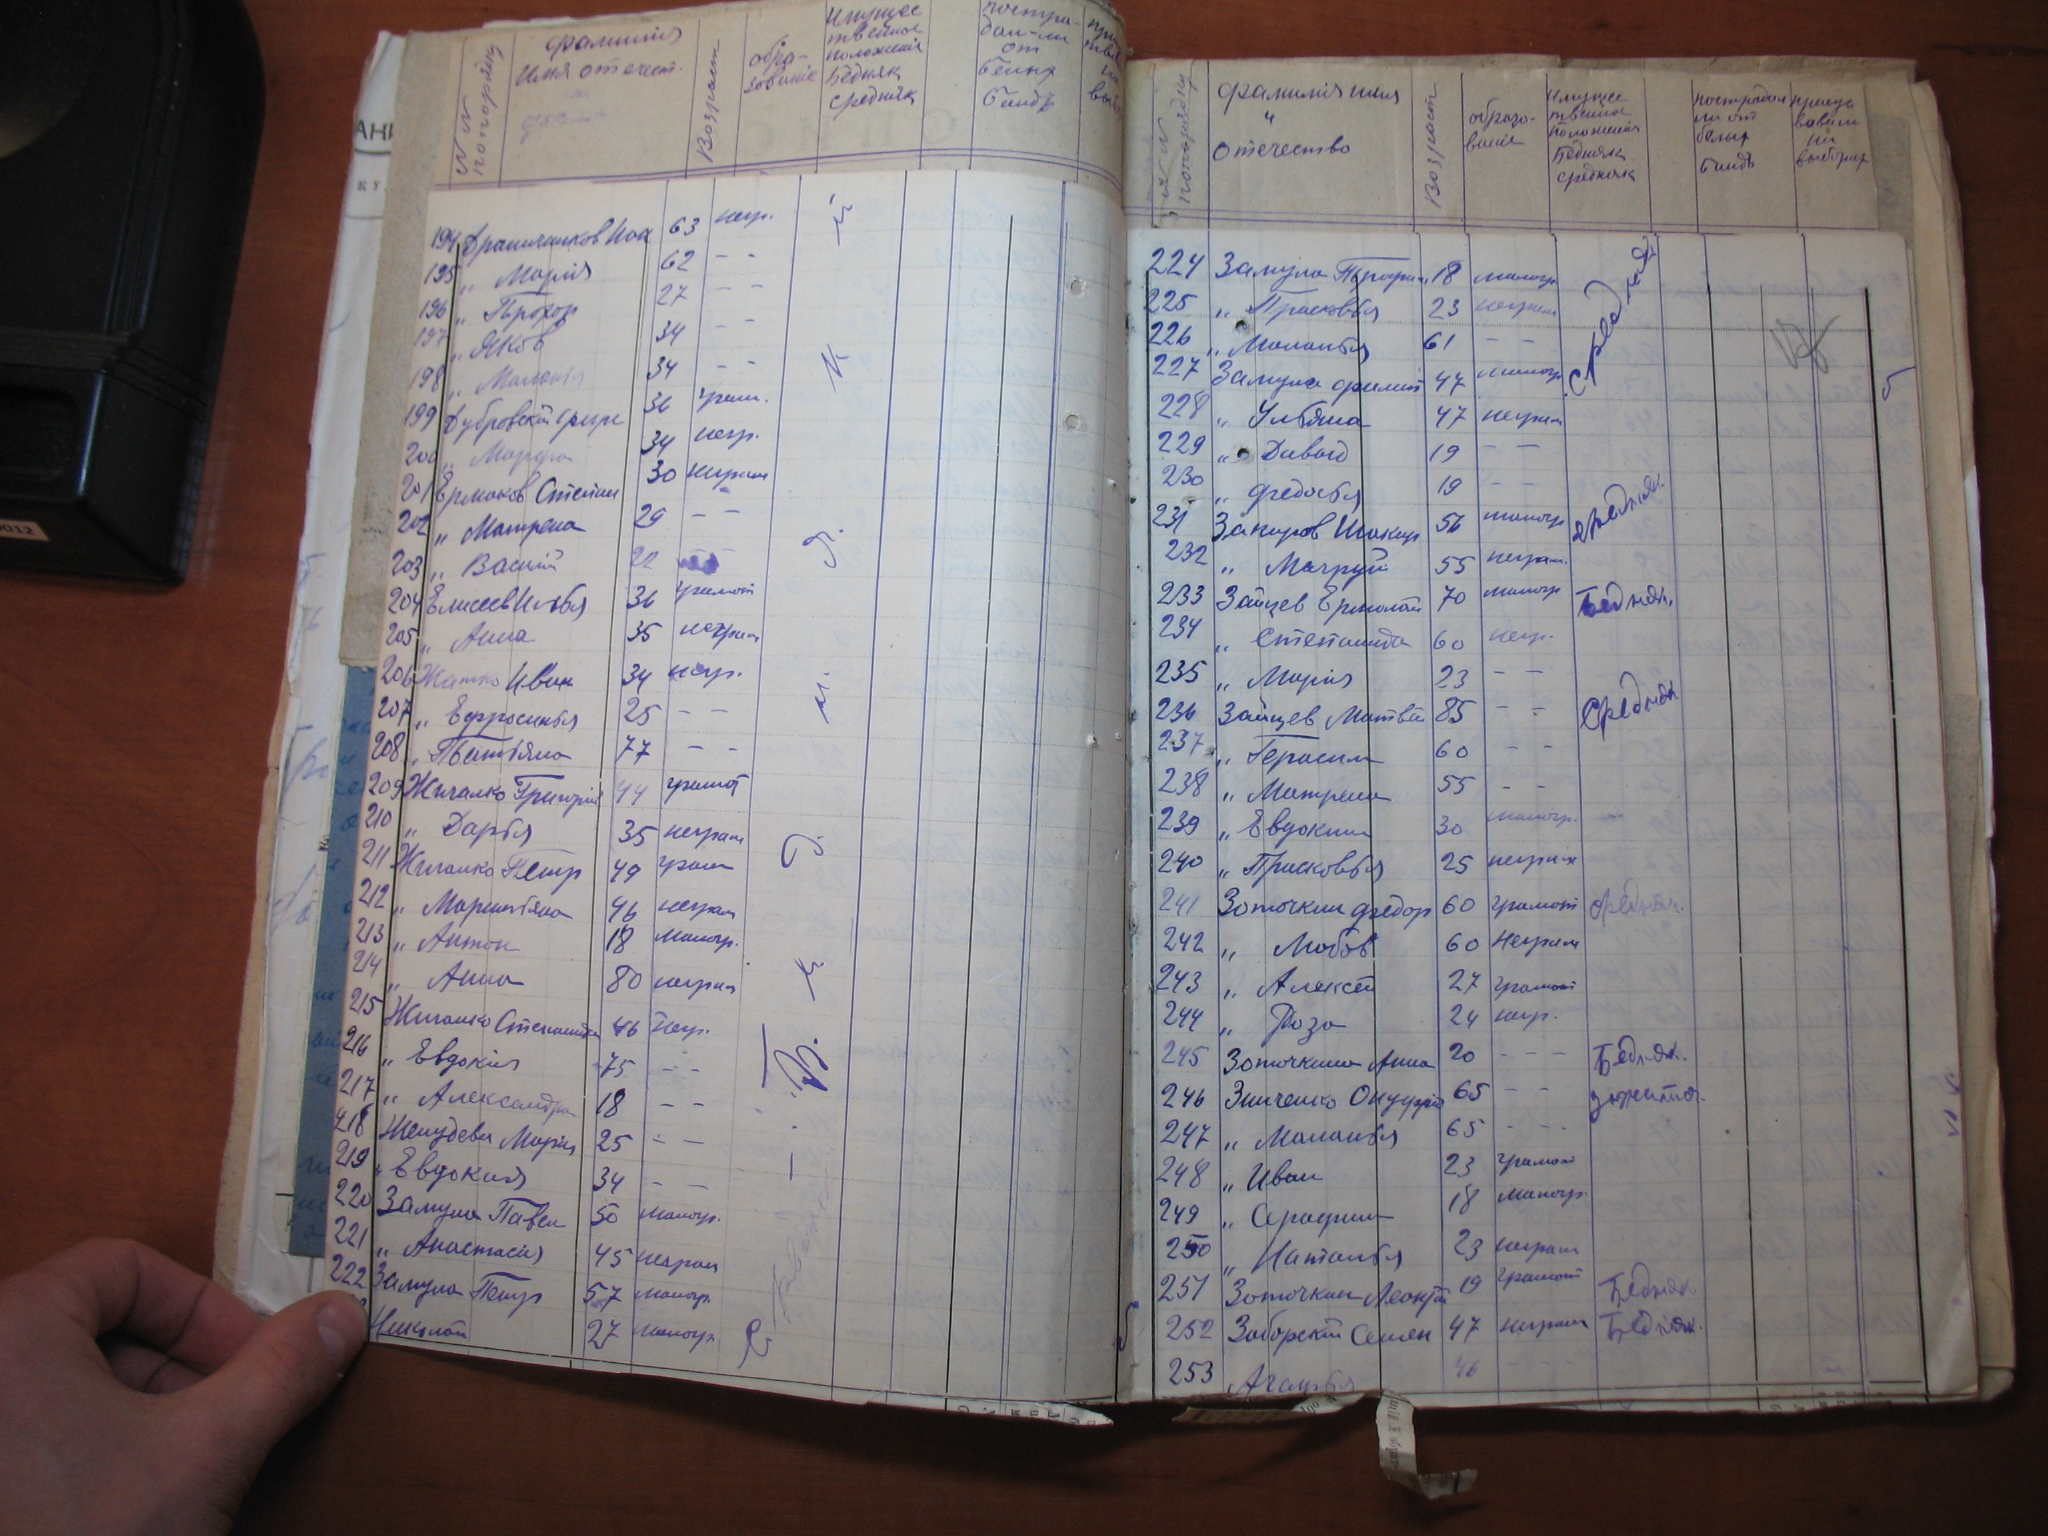 №№ по порядку
фамилия
имя отечест.
Возраст
обра-
зование
Имущес
твенное
положения
Бедняк
средняк
постра-
дал-ли
от
белых
банд
194 Драпиляков 63 негр.
195 „ Мария 62 – –
196 „ Прохор 27 – –
197 „ Яков 34 – –
198 „ Маланья 34 – –
199 Дубровскiй 36 грам.
200 „ Марфа 34 негр.
201 Ермаков Степан 30 неграм
202 „ Матрена 29 – –
203 „ Василiй 22
204 Елисеев Илья 36 грамот
205 „ Анна 35 неграм
206 Жатко Иван 34 негр.
207 „ Ефросинья 25 – –
208 „ Татьяна 77 – –
209 Жигалко Григорiй 44 грамот
210 „ Дарья 35 неграм
211 Жигалко Петр 49 грам
212 „ Маритьяна 46 неграм
213 „ Антон 18 малогр.
214 „ Анна 80 неграм
215 Жигалко Степанида 46 негр.
216 „ Евдокия 75 – –
217 „ Александра 18 – –
218 Желудева Мария 25 – –
219 „ Евдокия 34 – –
220 Замула Павел 50 малогр.
221 „ Анастасия 45 неграм
222 Замула Петр 57 малогр.
Николай 27 малогр.
№№ по порядку
фамилия имя
и
отечество
Возраст
образо-
вание
Имущес
твенное
положения
Бедняк
средняк
пострадал
ли от
белых
банд
присуд
вовали
на
выборах
224 Замула Трофим 18 малогр средняк
225 „ Прасковья 23 неграм
226 „ Маланья 61 – –
227 Замула филип 47 малогр
228 „ Ульяна 47 неграм
229 „ Давыд 19 – –
230 „ федосья 19 – –
231 Закиров Шакир 56 малогр средняк.
232 „ Магруй 55 неграм.
233 Зайцев Ермолай 70 малогр Бедняк.
234 „ Степанида 60 негр.
235 „ Мария 23 – –
236 Зайцев Матвей 85 – – Средняк
237 „ Герасим 60 – –
238 „ Матрена 55 – –
239 „ Евдоким 30 малогр.
240 „ Прасковья 25 неграм
241 Зоточкин федор 60 грамот средняк.
242 „ Любов 60 Неграм
243 „ Алексей 27 грамот
244 „ Роза 24 негр.
245 Зоточкина Анна 20 – – – Бедняк.
246 Зинченко Онуфрiй 65 – – зажиточ.
247 „ Маланья 65 – – –
248 „ Иван 23 грамот
249 „ Серафим 18 малогр.
250 „ Наталья 23 неграм
251 Зоточкин Леонтiй 19 грамот Бедняк
252 Заборскiй Семен 47 неграм Бедняк.
253 Агафья 46 – – –